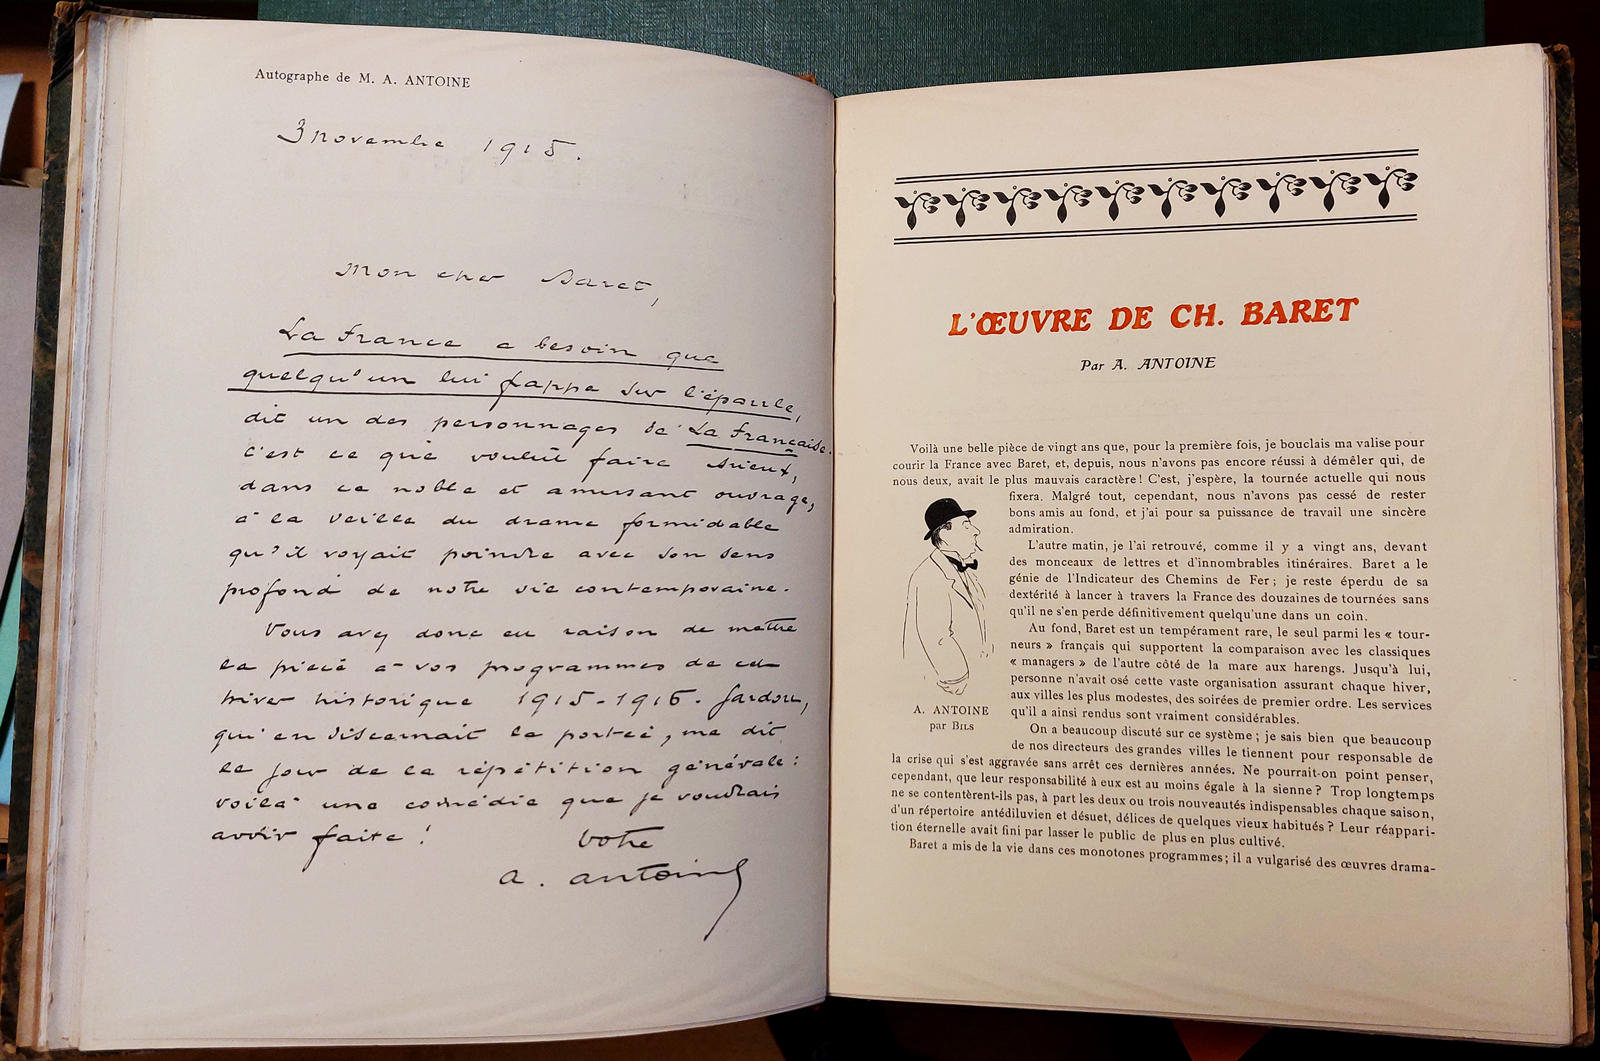 Autographe de M. A. ANTOINE
3 novembre 1915.
Mon cher Baret,
La France a besoin que
quelqu'un lui frappe sur l'épaule,
dit un des personnages de La Française.
C'est ce que voulut faire Brieux,
dans ce noble et amusant ouvrage,
à la veille du drame formidable
qu'il voyait poindre avec son sens
profond de notre vie contemporaine.
Vous avez donc eu raison de mettre
la pièce à vos programmes de cet
hiver historique 1915-1916. Sardou,
qui en discernait la portée, me dit
le jour de la répétition générale :
voilà une comédie que je voudrais
avoir faite !
Votre
A. Antoine
L'ŒUVRE DE CH. BARET
Par A. ANTOINE
Voilà une belle pièce de vingt ans que, pour la première fois, je bouclais ma valise pour
courir la France avec Baret, et, depuis, nous n'avons pas encore réussi à démêler qui, de
nous deux, avait le plus mauvais caractère ! C'est, j'espère, la tournée actuelle qui nous
fixera. Malgré tout, cependant, nous n'avons pas cessé de rester
bons amis au fond, et j'ai pour sa puissance de travail une sincère
admiration.
L'autre matin, je l'ai retrouvé, comme il y a vingt ans, devant
des monceaux de lettres et d'innombrables itinéraires. Baret a le
génie de l'Indicateur des Chemins de Fer ; je reste éperdu de sa
dextérité à lancer à travers la France des douzaines de tournées sans
qu'il ne s'en perde définitivement quelqu'une dans un coin.
Au fond, Baret est un tempérament rare, le seul parmi les « tour-
neurs » français qui supportent la comparaison avec les classiques
« managers » de l'autre côté de la mare aux harengs. Jusqu'à lui,
personne n'avait osé cette vaste organisation assurant chaque hiver,
aux villes les plus modestes, des soirées de premier ordre. Les services
qu'il a ainsi rendus sont vraiment considérables.
A. ANTOINE
par BILS
On a beaucoup discuté sur ce système ; je sais bien que beaucoup
de nos directeurs des grandes villes le tiennent pour responsable de
la crise qui s'est aggravée sans arrêt ces dernières années. Ne pourrait-on point penser,
cependant, que leur responsabilité à eux est au moins égale à la sienne ? Trop longtemps
ne se contentèrent-ils pas, à part les deux ou trois nouveautés indispensables chaque saison,
d'un répertoire antédiluvien et désuet, délices de quelques vieux habitués ? Leur réappari-
tion éternelle avait fini par lasser le public de plus en plus cultivé.
Baret a mis de la vie dans ces monotones programmes ; il a vulgarisé des œuvres drama-